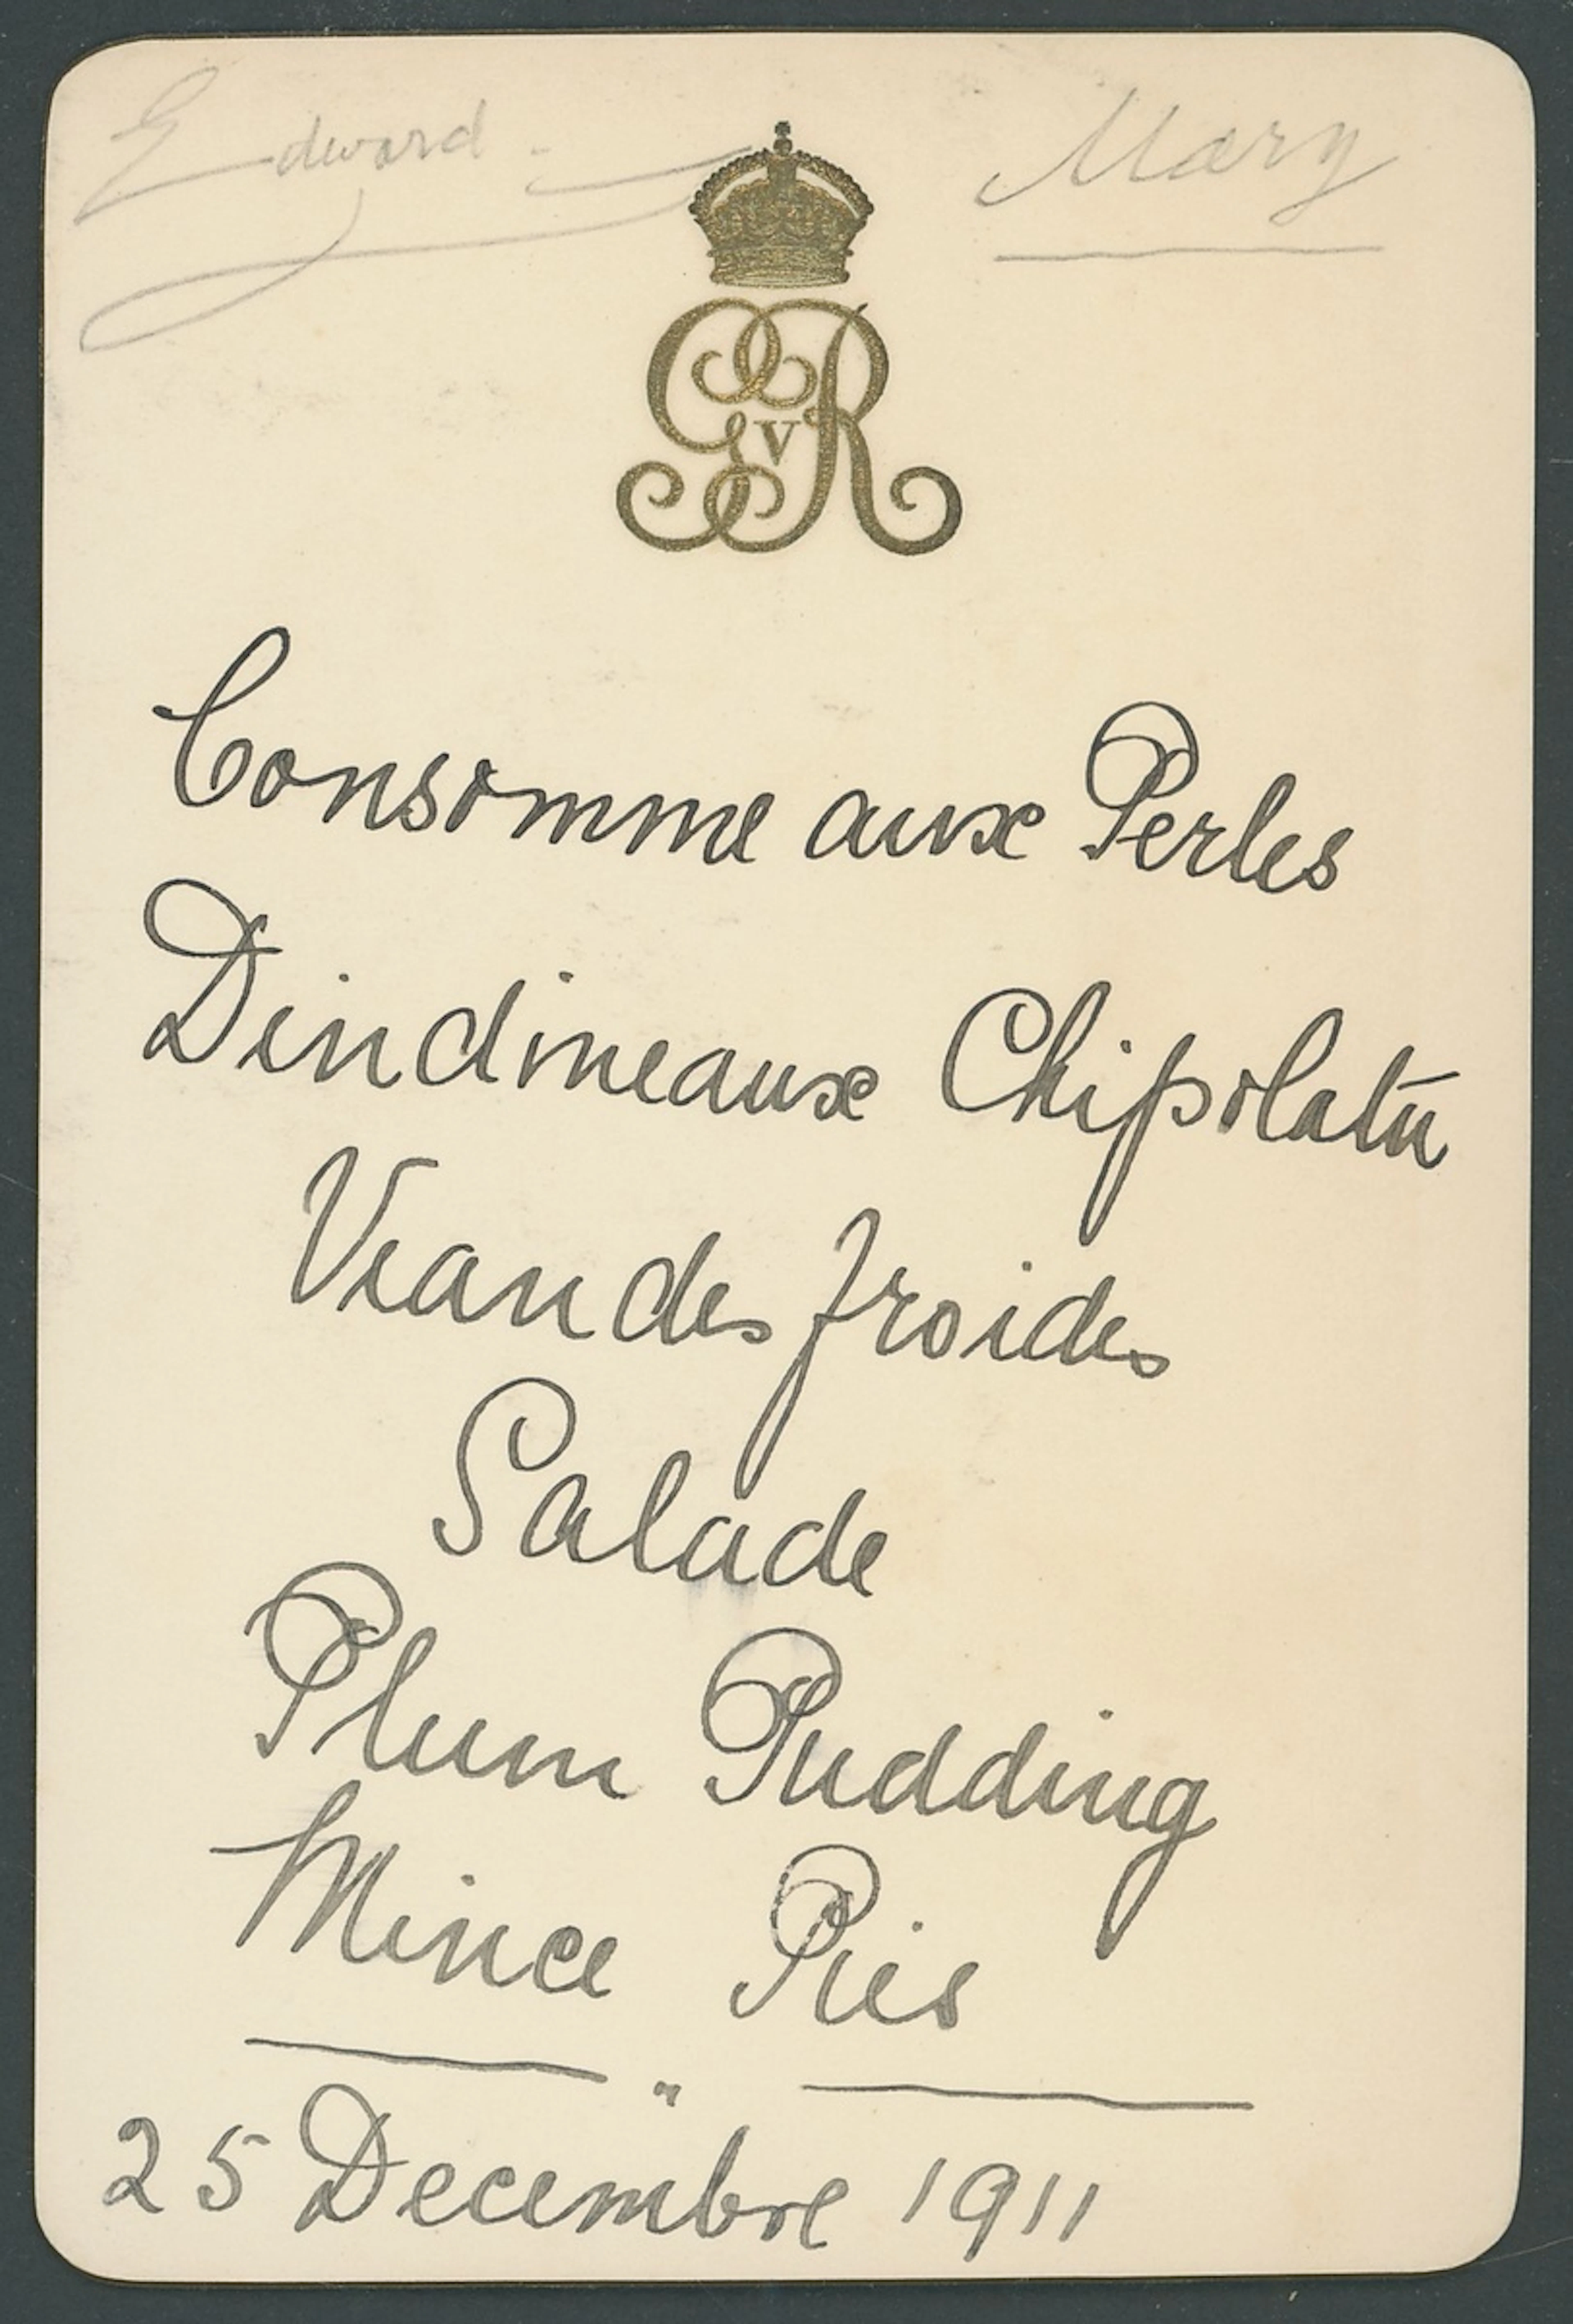 Edward Mary
GVR
Consomme aux Perles
Dindineaux Chipolata
Viandes froides
Salade
Plum Pudding
Mince Pies
"
25 Decembre 1911